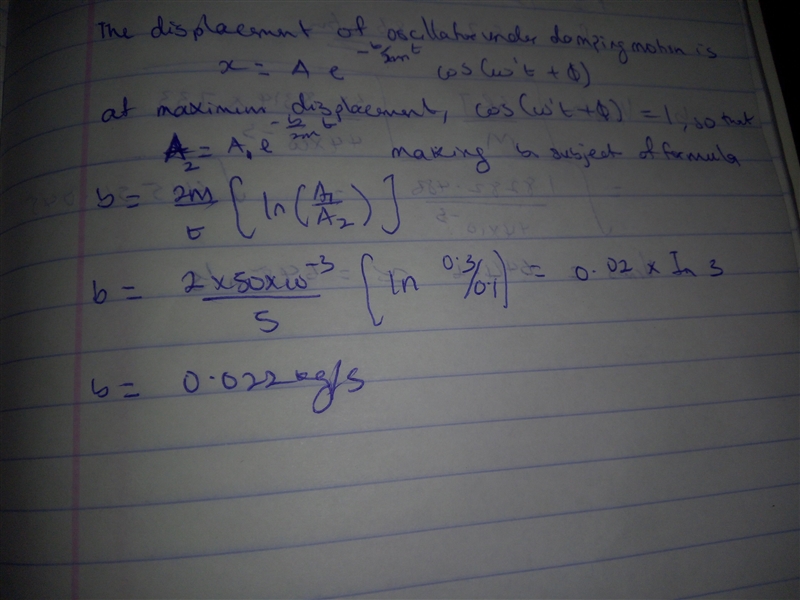 The displacement of oscillator under damping motion is
x = A e^{-b/2m t} cos(ω't + ϕ)
at maximum displacement, cos(ω't + ϕ) = 1, so that
A_2 = A_1 e^{-b/2m t} making b subject of formula
b = 2m/t [ ln (A_1/A_2) ]
b = 2 x 50 x 10^{-3}/5 [ ln 0.3/0.1 ] = 0.02 x In 3
b = 0.022 kg/s